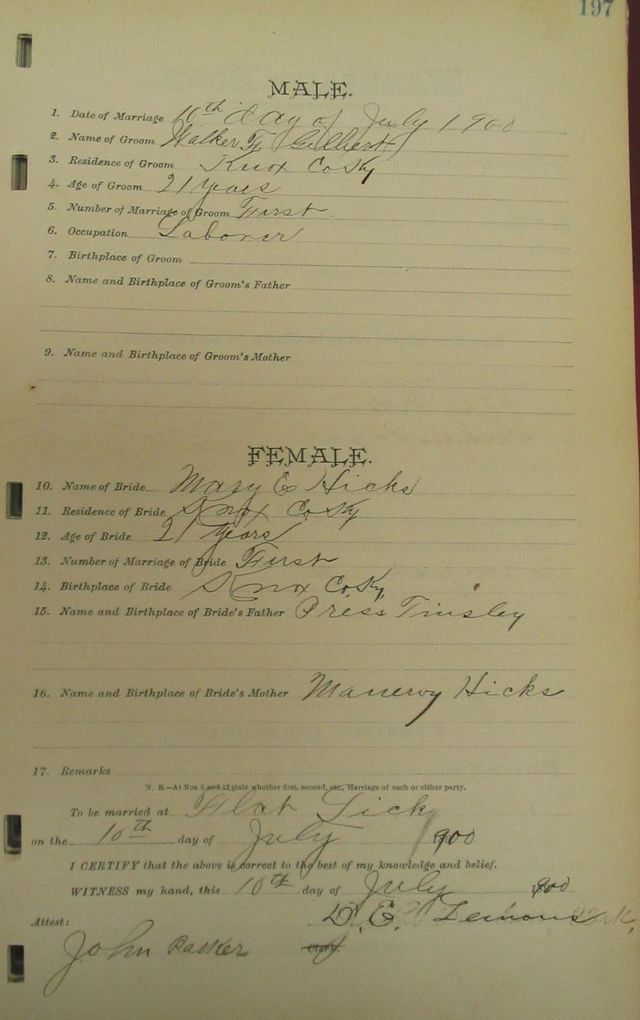 197
MALE.
1. Date of Marriage 10th day of July 1900
2. Name of Groom Walker F Gilbert
3. Residence of Groom Knox Co Ky
4. Age of Groom 21 years
5. Number of Marriage of Groom First.
6. Occupation Laborer
7. Birthplace of Groom
8. Name and Birthplace of Groom's Father
9. Name and Birthplace of Groom's Mother
FEMALE.
10. Name of Bride Mary E Hicks
11. Residence of Bride Knox Co Ky
12. Age of Bride 21 years
13. Number of Marriage of Bride First
14. Birthplace of Bride Knox Co, Ky,
15. Name and Birthplace of Bride's Father Press Tinsley
16. Name and Birthplace of Bride's Mother Manervy Hicks
17. Remarks
N. B.—At Nos. 5 and 13 state whether first, second, etc., Marriage of each or either party.
To be married at Flat Lick
on the 10th day of July 1900
I CERTIFY that the above is correct to the best of my knowledge and belief.
WITNESS my hand, this 10th day of July 900
Attest: D. E. Lemons
John Parker Clerk.